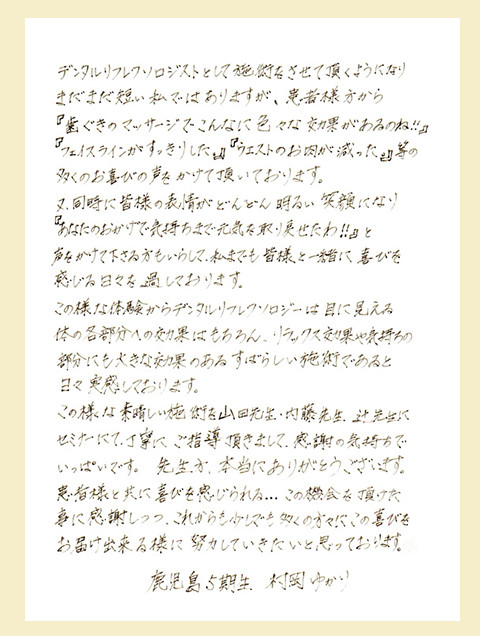 デンタルリフレクソロジストとして施術をさせて頂くようになり
まだまだ短い私ではありますが、患者様方から
『歯ぐきのマッサージでこんなに色々な効果があるのね!!』
『フェイスラインがすっきりした。』『ウエストのお肉が減った。』等の
多くのお喜びの声をかけて頂いております。
又、同時に皆様の表情がどんどん明るい笑顔になり
『あなたのおかげで気持ちまで元気を取り戻せたわ!!』と
声をかけて下さる方もいらして、私までも皆様と一緒に喜びを
感じる日々を過しております。
この様な体験からデンタルリフレクソロジーは目に見える
体の各部分への効果はもちろん、リラックス効果や気持ちの
部分にも大きな効果のあるすばらしい施術であると
日々実感しております。
この様な素晴しい施術を山田先生・内藤先生、辻先生に
セミナーにて、丁寧にご指導頂きまして、感謝の気持ちで
いっぱいです。 先生方、本当にありがとうございます。
患者様と共に喜びを感じられる…この機会を頂けた
事に感謝しつつ、これからも少しでも多くの方々にこの喜びを
お届け出来る様に努力していきたいと思っております。
鹿児島5期生 村岡ゆかり